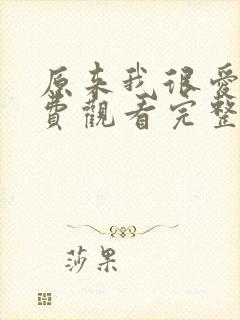 原来我很爱
費觀看完整
莎果